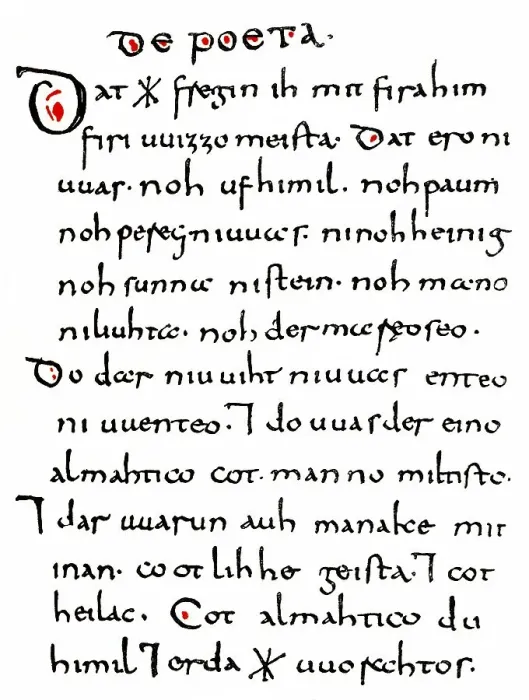 De poeta.
Dat ᚼ fregin ih mit firahim
firi uuizzo meista. Dat ero ni
uuas. noh ufhimil. noh paum
noh pereg niuuas. ninohheinig
noh sunna nistein. noh mano
niliuhta. noh der mareoseo.
Do dar niuuiht niuuas enteo
ni uuenteo. ⁊ do uuas der eino
almahtico cot. manno miltisto.
⁊ dar uuarun auh manake mit
inan. cootlihhe geista. ⁊ cot
heilac. Cot almahtico du
himil ⁊ erda ᚼ uuorahtos.